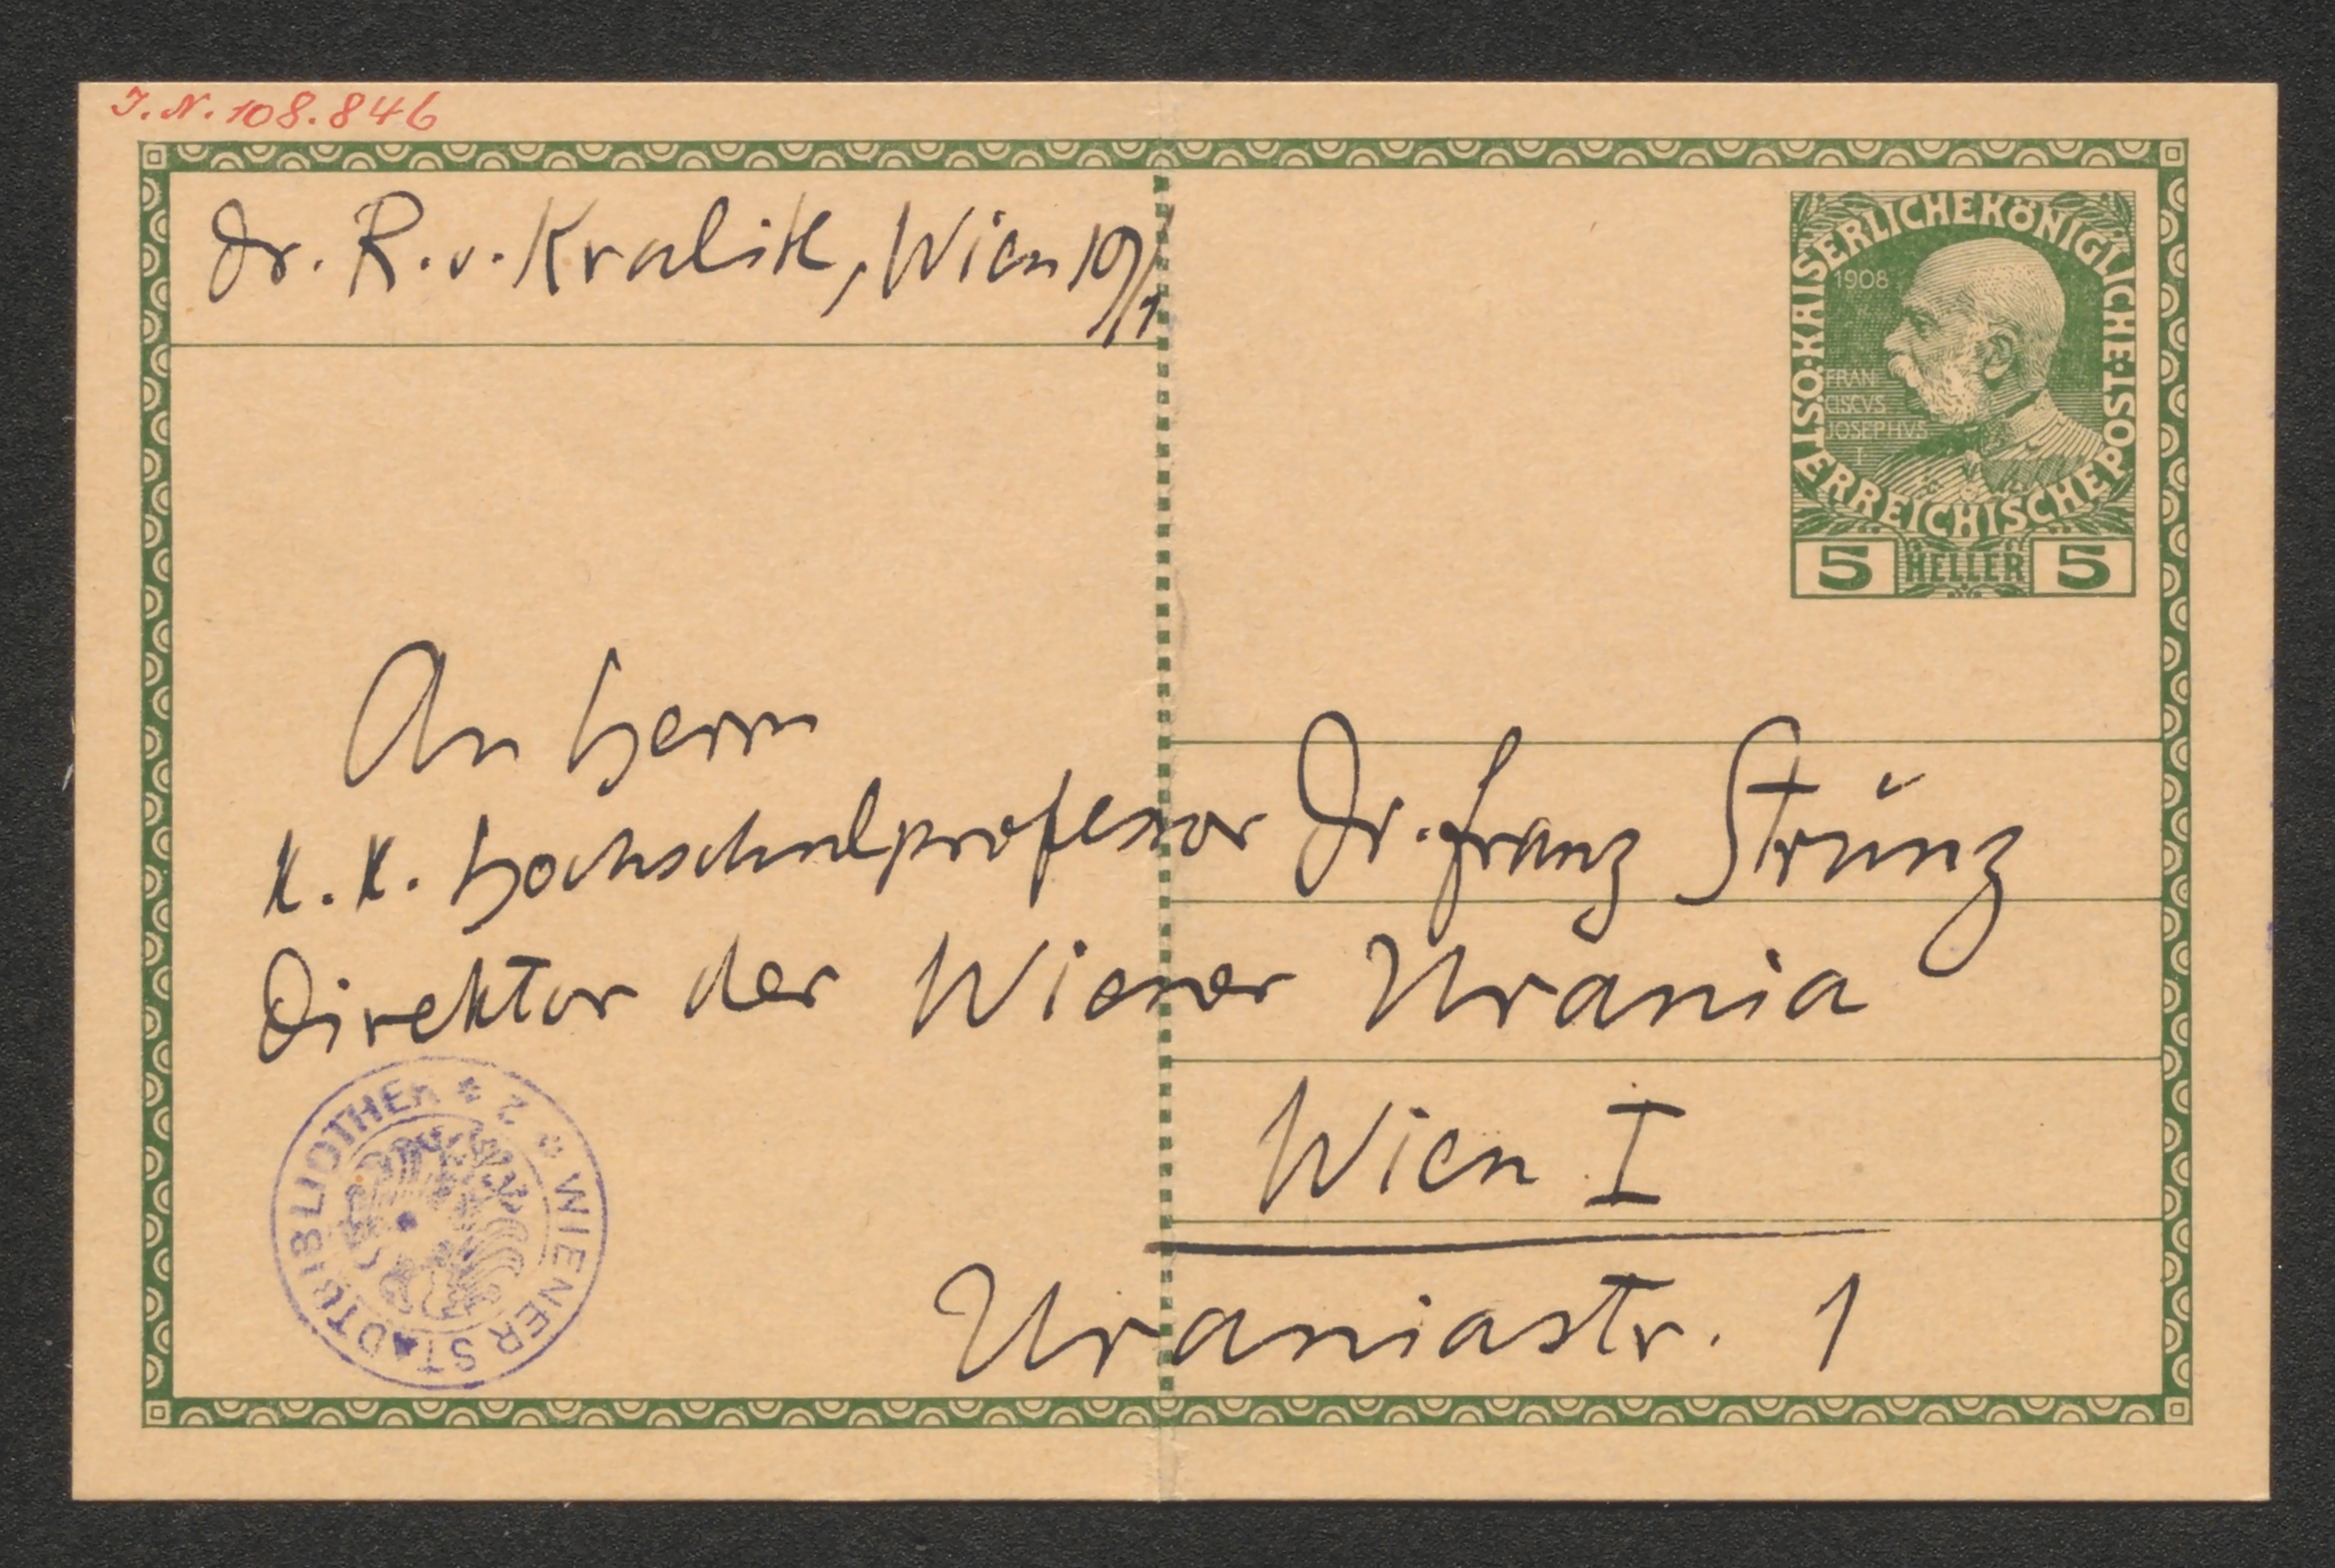 J. N. 108.846
Dr. R. v. Kralik, Wien 19/1
KAISERLICHE KÖNIGLICHE
ÖSTERREICHISCHE POST
1908
FRAN
CISCVS
JOSEPHVS
I
5 HELLER 5
An Herrn
K. K. Hochschulprofessor Dr. Franz Strŭnz
Direktor der Wiener Urania
Wien I
Uraniastr. 1
* WIENER STADTBIBLIOTHEK * 2